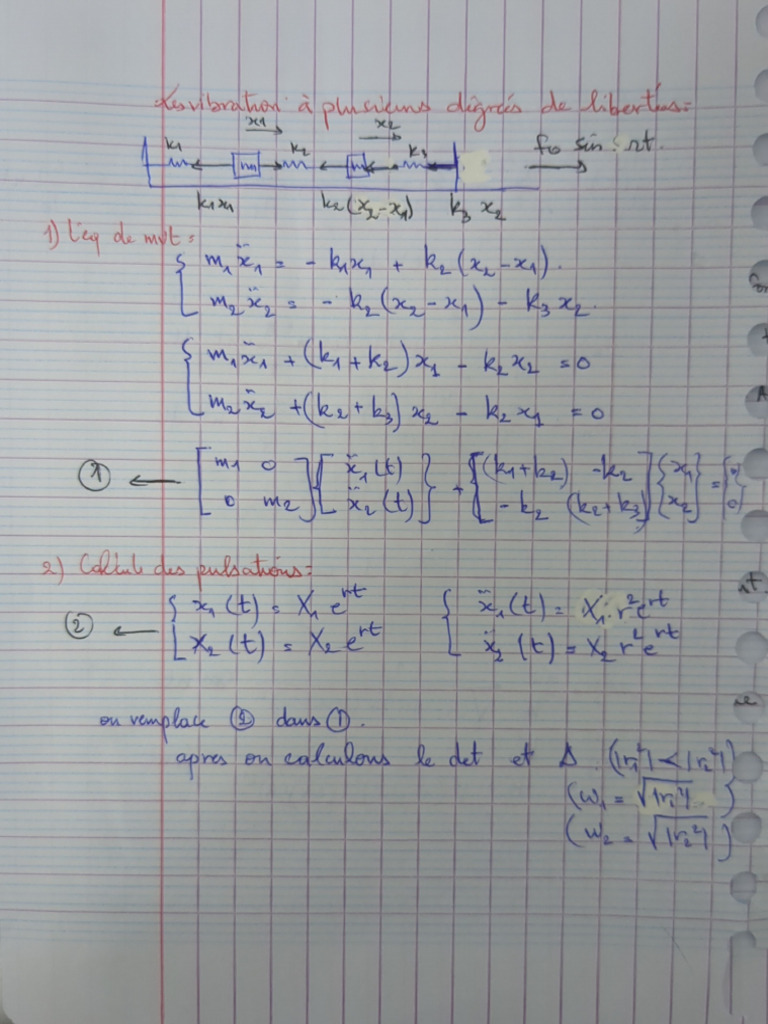 Les vibration à plusieurs dégrés de libertés=
x1 x2
k1 k2 k3 f0 sin Ωt.
m m
k1x1 k2(x2-x1) k3 x2
1) l'eq de mvt =
{ m1ẍ1 = - k1x1 + k2(x2-x1).
m2ẍ2 = - k2(x2-x1) - k3x2.
{ m1ẍ1 + (k1+k2)x1 - k2x2 = 0
m2ẍ2 +(k2+k3)x2 - k2x1 = 0
① ← [m1 0 ; 0 m2]{ẍ1(t) ; ẍ2(t)} + [(k1+k2) -k2 ; -k2 (k2+k3)]{x1 ; x2} = {0 ; 0}
2) Calcul des pulsations=
② ← { x1(t) = X1 e^rt { ẍ1(t) = X1 r²e^rt
X2(t) = X2 e^rt ẍ2(t) = X2 r²e^rt
on remplace ② dans ①.
apres on calculons le det et Δ. (|r1²| < |r2²|)
(ω1 = √|r1²| )
(ω2 = √|r2²| )